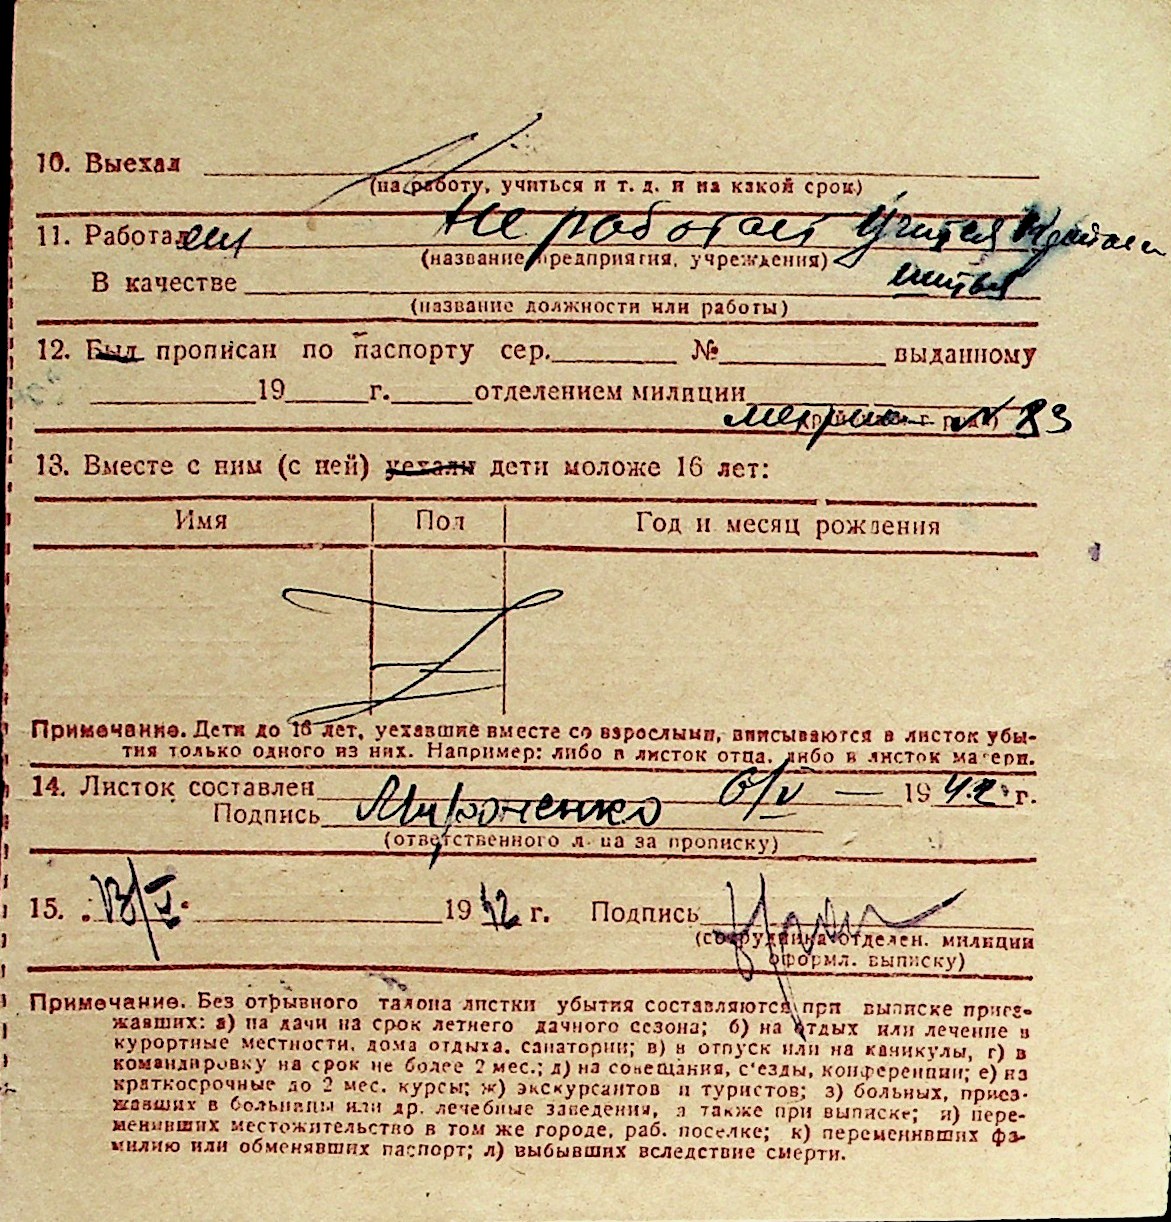 10. Выехал
(на работу, учиться и т. д. и на какой срок)
11. Работал Не работает Учится
(название предприятия, учреждения)
В качестве шитья
(название должности или работы)
12. Был прописан по паспорту сер. № выданному
19 г. отделением милиции
№ 83
13. Вместе с ним (с ней) уехали дети моложе 16 лет:
Имя Пол Год и месяц рождения
Примечание. Дети до 16 лет, уехавшие вместе со взрослыми, вписываются в листок убы-
тия только одного из них. Например: либо в листок отца, либо в листок матери.
14. Листок составлен 6/V — 1942 г.
Подпись Мироненко
(ответственного лица за прописку)
15. 13/V 1942 г. Подпись
(сотрудника отделен. милиции
оформл. выписку)
Примечание. Без отрывного талона листки убытия составляются при выписке приез-
жавших: а) на дачи на срок летнего дачного сезона; б) на отдых или лечение в
курортные местности, дома отдыха, санатории; в) в отпуск или на каникулы, г) в
командировку на срок не более 2 мес.; д) на совещания, с'езды, конференции; е) на
краткосрочные до 2 мес. курсы; ж) экскурсантов и туристов; з) больных, приез-
жавших в больницы или др. лечебные заведения, а также при выписке; и) пере-
менивших местожительство в том же городе, раб. поселке; к) переменивших фа-
милию или обменявших паспорт; л) выбывших вследствие смерти.